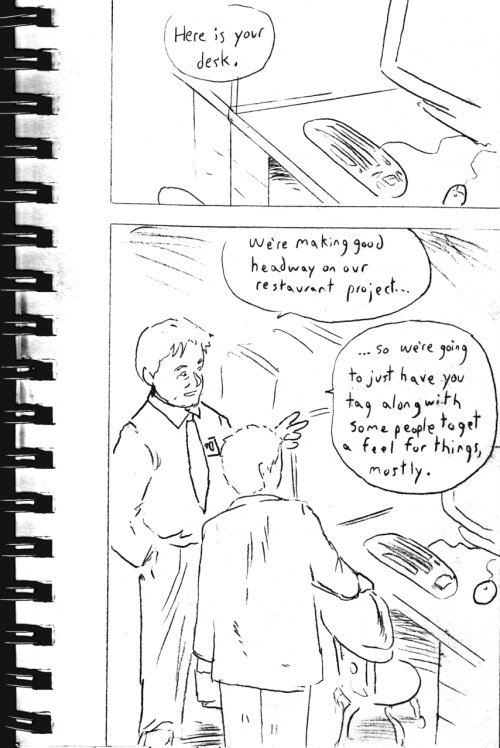 Here is your
desk.
We're making good
headway on our
restaurant project...
... so we're going
to just have you
tag along with
some people to get
a feel for things,
mostly.